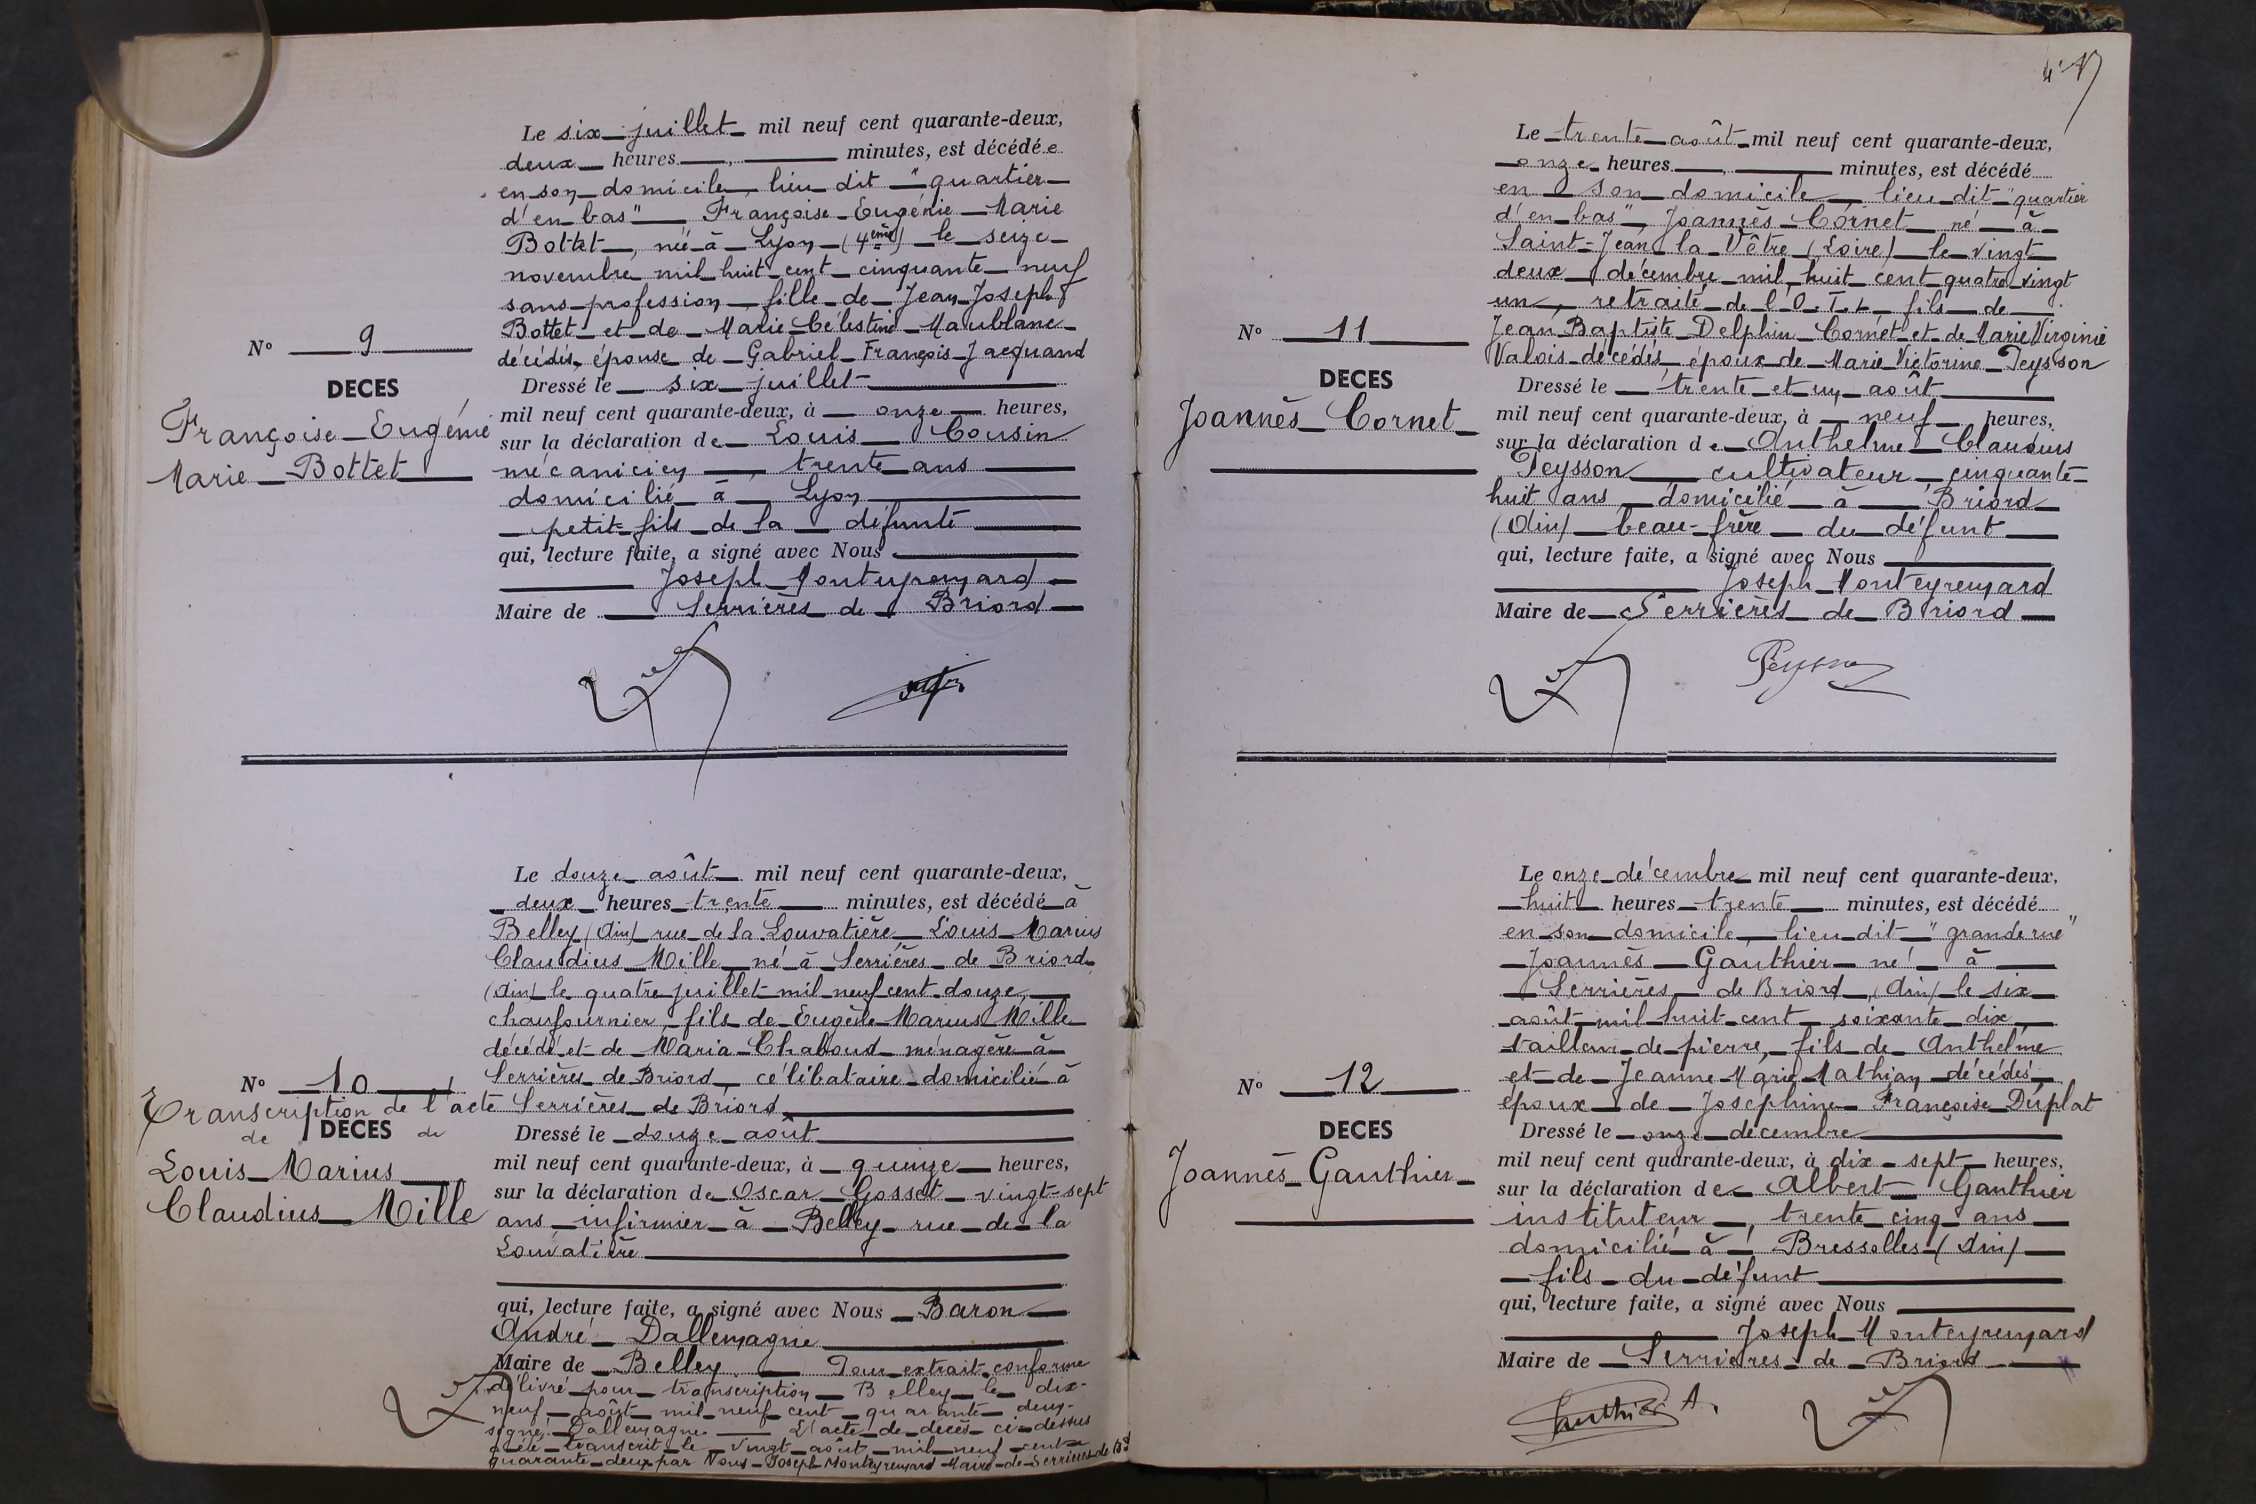 Le six juillet mil neuf cent quarante-deux,
deux heures , minutes, est décédée
en son domicile lieu dit "quartier
d'en bas" Françoise Eugénie Marie
Bottet, née à Lyon (4ème) le seize
novembre mil huit cent cinquante neuf
sans profession fille de Jean Joseph
Bottet et de Marie Célestine Maublanc
décédés, épouse de Gabriel François Jacquand
Dressé le six juillet
mil neuf cent quarante-deux, à onze heures,
sur la déclaration de Louis Cousin
mécanicien, trente ans
domicilié à Lyon
petit-fils de la défunte
qui, lecture faite, a signé avec Nous
Joseph Monteyremard
Maire de Serrières de Briord
N° 9
DECES
Françoise Eugénie
Marie Bottet
Le douze août mil neuf cent quarante-deux,
deux heures trente minutes, est décédé à
Belley (Ain) rue de la Louvatière Louis Marius
Claudius Mille né à Serrières de Briord
(Ain) le quatre juillet mil neuf cent douze,
chaufournier, fils de Eugène Marius Mille
décédé et de Maria Chaboud ménagère à
Serrières de Briord, célibataire domicilié à
Serrières de Briord
Dressé le douze août
mil neuf cent quarante-deux, à quinze heures,
sur la déclaration de Oscar Gosset vingt-sept
ans infirmier à Belley rue de la
Louvatière
qui, lecture faite, a signé avec Nous Baron
André Dallemagne
Maire de Belley Pour extrait conforme
délivré pour transcription Belley le dix-
neuf août mil neuf cent quarante deux-
signé: Dallemagne L'acte de décès ci-dessus
a été transcrit le vingt août mil neuf cent
quarante-deux par Nous Joseph Monteyremard Maire de Serrières de Bd
N° 10
Transcription de l'acte
de DECES de
Louis Marius
Claudius Mille
Le trente août mil neuf cent quarante-deux,
onze heures , minutes, est décédé
en son domicile, lieu dit "quartier
d'en bas", Joannès Cornet né à
Saint-Jean la Vêtre (Loire) le vingt
deux décembre mil huit cent quatre vingt
un, retraité de l'O.T.L fils de
Jean Baptiste Delphin Cornet et de Marie Virginie
Valois décédés époux de Marie Victorine Peysson
Dressé le trente et un août
mil neuf cent quarante-deux, à neuf heures,
sur la déclaration de Anthelme Claudius
Peysson cultivateur, cinquante-
huit ans domicilié à Briord
(Ain) beau-frère du défunt
qui, lecture faite, a signé avec Nous
Joseph Monteyremard
Maire de Serrières de Briord
Peysson
N° 11
DECES
Joannès Cornet
Le onze décembre mil neuf cent quarante-deux,
huit heures trente minutes, est décédé
en son domicile, lieu dit "grande rue"
Joannès Gauthier né à
Serrières de Briord, (Ain) le six
août mil huit cent soixante dix,
tailleur de pierre, fils de Anthelme
et de Jeanne Marie Mathian décédés
époux de Joséphine Françoise Duplat
Dressé le onze décembre
mil neuf cent quarante-deux, à dix-sept heures,
sur la déclaration de Albert Gauthier
instituteur, trente cinq ans
domicilié à Bressolles (Ain)
fils du défunt
qui, lecture faite, a signé avec Nous
Joseph Monteyremard
Maire de Serrières de Briord
Gauthier A.
N° 12
DECES
Joannès Gauthier